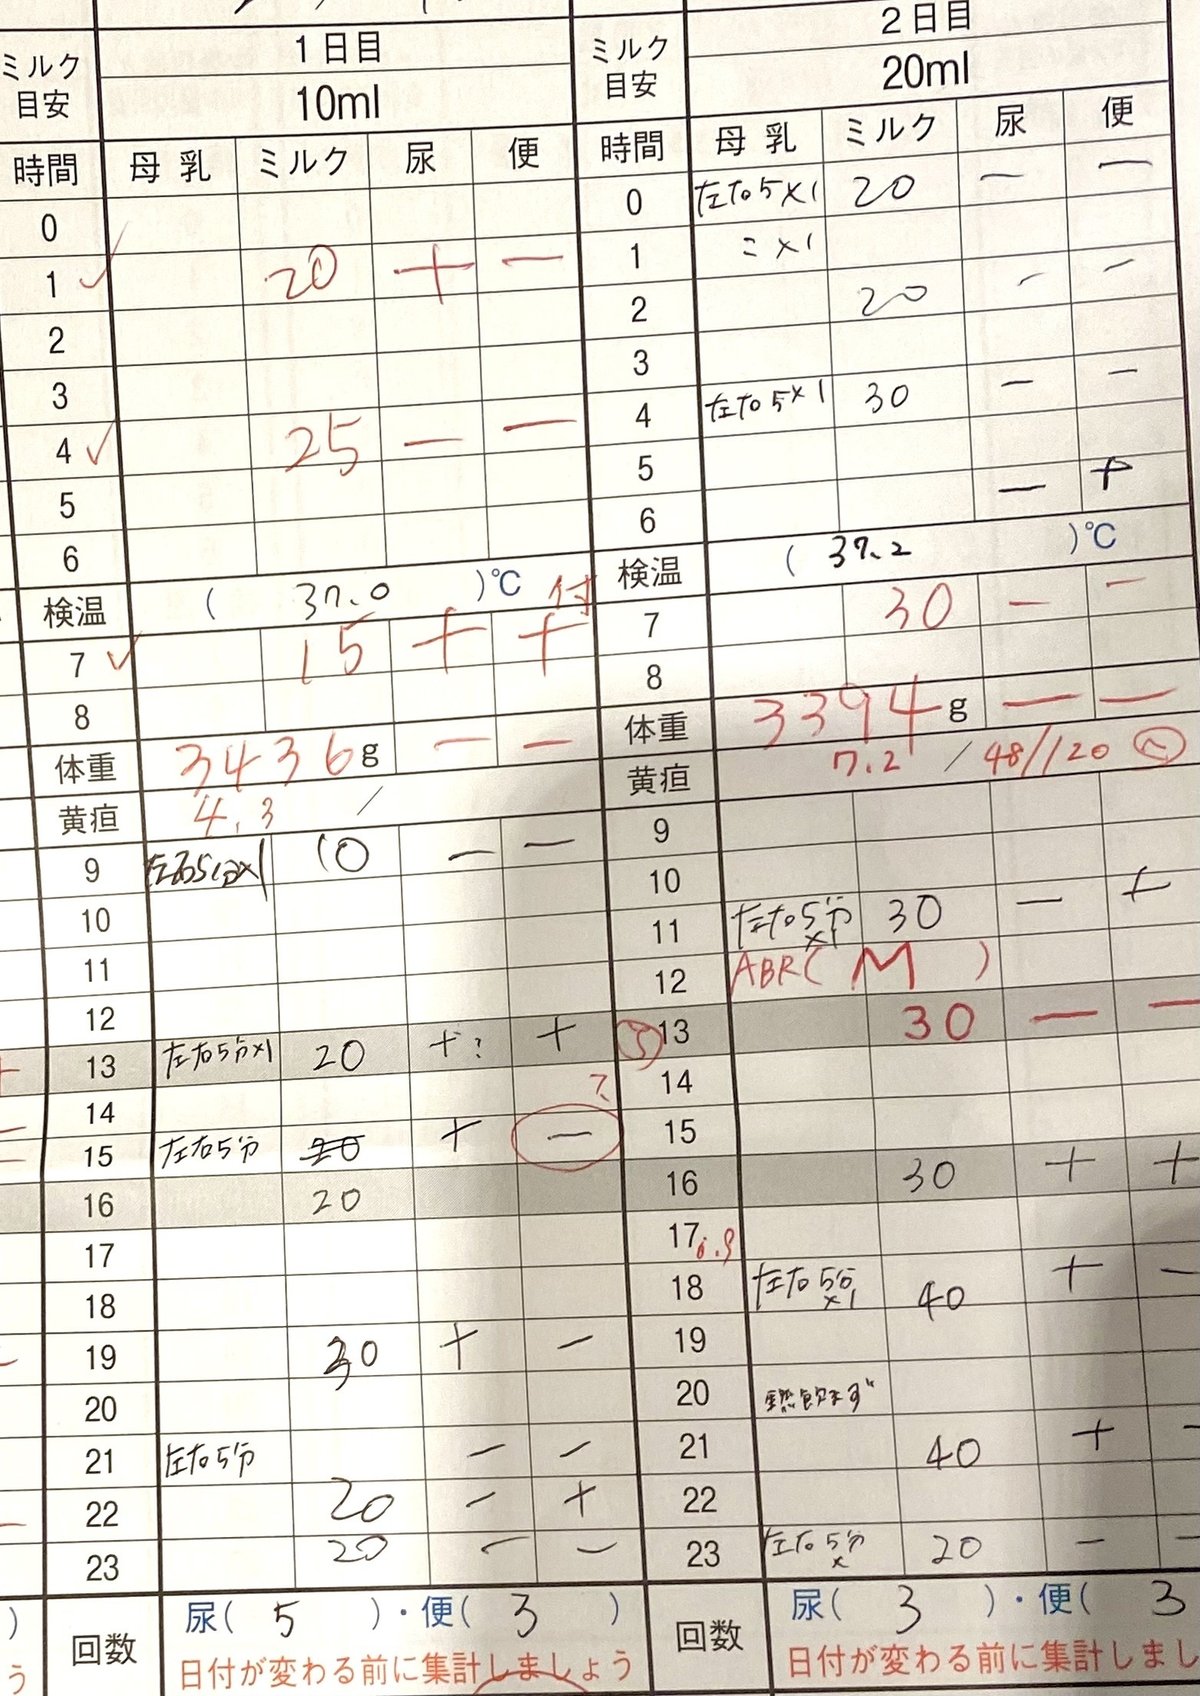 ミルク目安 1日目 ミルク目安 2日目
10ml 20ml
時間 母乳 ミルク 尿 便 時間 母乳 ミルク 尿 便
0 0 左右5×1 20 − −
1 ✓ 20 + − 1 ×1
2 2 20 − −
3 3
4 ✓ 25 − − 4 左右5×1 30 − −
5 5
6 6 − +
検温 ( 37.0 )℃ 付 検温 ( 37.2 )℃
7 ✓ 15 + + 7 30 − −
8 8
体重 3436g − − 体重 3394g − −
黄疸 4.3 / 黄疸 7.2 / 48//120
9 左右5分×1 10 − − 9
10 10
11 11 左右5分×1 30 − +
12 12 ABR( M )
13 左右5分×1 20 +? + 13 30 − −
14 ? 14
15 左右5分 20 + − 15
16 20 16 30 + +
17 17
18 18 左右5分×1 40 + −
19 30 + − 19
20 20 飲まず
21 左右5分 − − 21 40 + −
22 20 − + 22
23 20 − − 23 左右5分× 20 − −
回数 尿( 5 )・便( 3 ) 回数 尿( 3 )・便( 3
日付が変わる前に集計しましょう 日付が変わる前に集計しまし